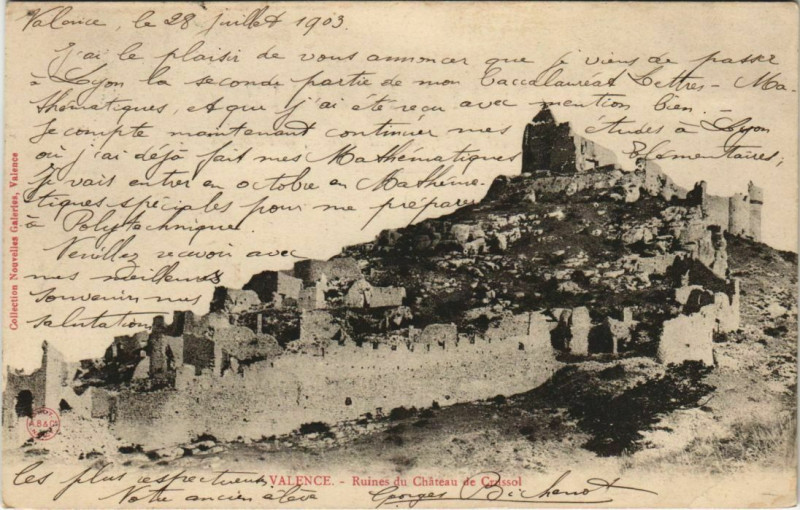 Valence, le 28 juillet 1903.
J'ai le plaisir de vous annoncer que je viens de passer
à Lyon la seconde partie de mon Baccalauréat Lettres - Ma-
thématiques, et que j'ai été reçu avec mention bien. -
Je compte maintenant continuer mes études à Lyon
où j'ai déjà fait mes Mathématiques Elémentaires;
Je vais entrer en octobre en Mathéma-
tiques-spéciales pour me préparer
à Polytechnique.
Veuillez recevoir avec
mes meilleurs
souvenirs mes
salutations
les plus respectueuses
Votre ancien élève Georges
VALENCE. - Ruines du Château de Crussol
Collection Nouvelles Galeries, Valence
B&G